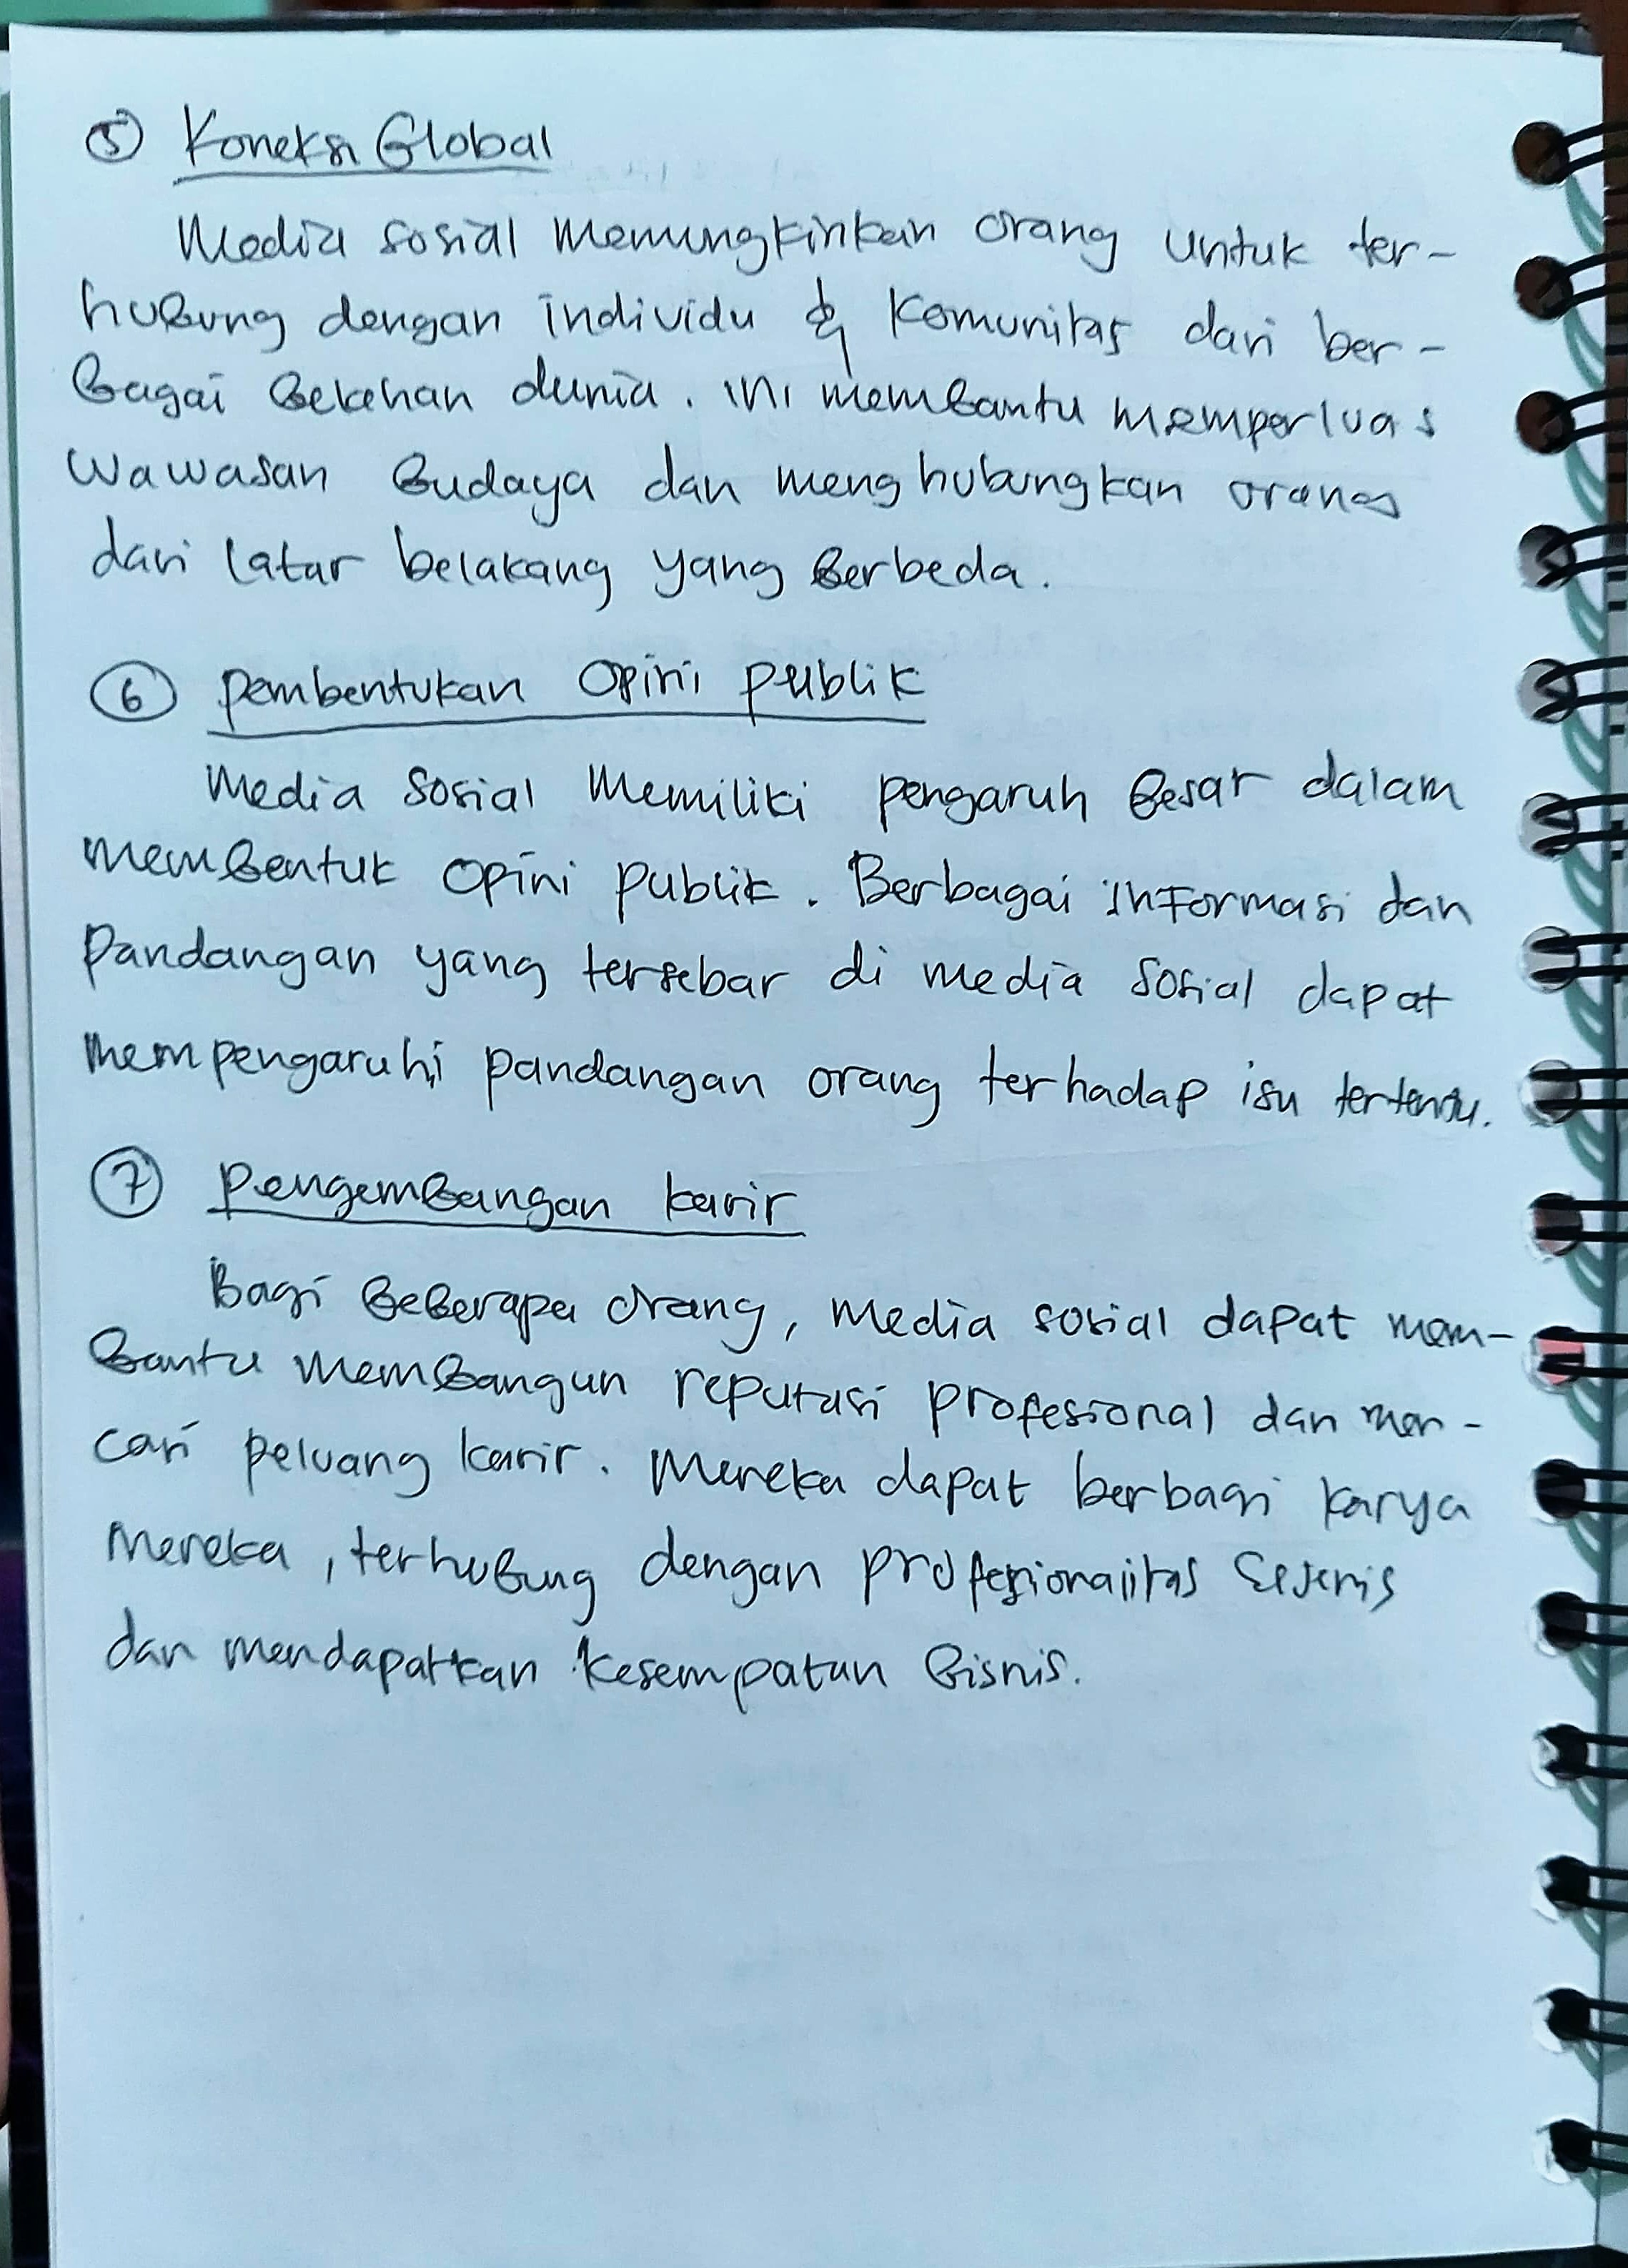 ⑤ Koneksi Global
Media sosial memungkinkan orang untuk ter-
hubung dengan individu & komunitas dari ber-
bagai belahan dunia. ini membantu memperluas
wawasan budaya dan menghubungkan orang
dari latar belakang yang berbeda.
⑥ pembentukan opini publik
Media sosial memiliki pengaruh besar dalam
membentuk opini publik. Berbagai informasi dan
pandangan yang tersebar di media sosial dapat
mempengaruhi pandangan orang terhadap isu tertentu.
⑦ pengembangan karir
Bagi beberapa orang, media sosial dapat mem-
bantu membangun reputasi profesional dan men-
cari peluang karir. Mereka dapat berbagi karya
mereka, terhubung dengan profesionalitas sejenis
dan mendapatkan kesempatan bisnis.